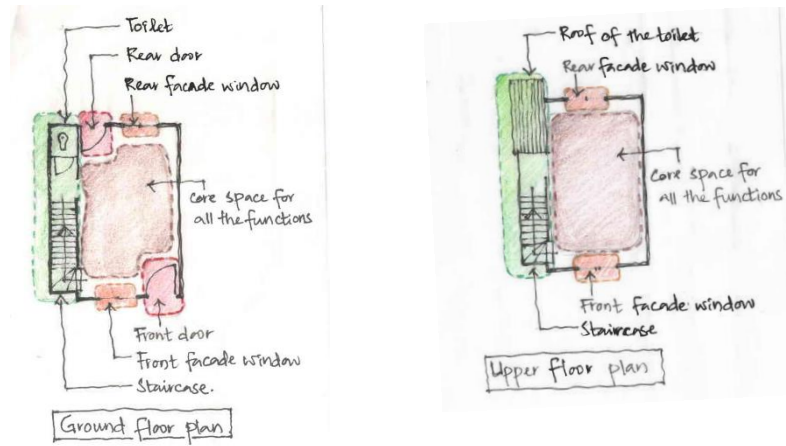 Toilet
Rear door
Rear facade window
core space for
all the functions
Front door
Front facade window
Staircase.
Ground floor plan
Roof of the toilet
Rear facade window
Core space for
all the functions
Front facade window
Staircase
Upper floor plan